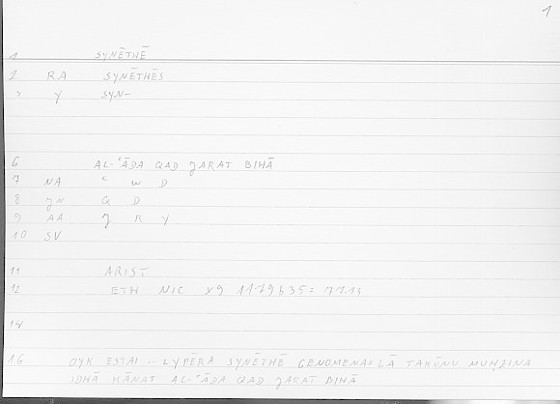 1
1 SYNĒTHĒ
2 RA SYNĒTHĒS
3 Y SYN-
6 AL-ʿĀDA QAD JARAT BIHĀ
7 NA ʿ W D
8 JN Q D
9 AA J R Y
10 SV
11 ARIST
12 ETH NIC X9 1179b35 = 77.14
14
16 OYK ESTAI .. LYPĒRA SYNĒTHĒ GENOMENA = LĀ TAKŪNU MUḤZINA
IDHĀ KĀNAT AL-ʿĀDA QAD JARAT BIHĀ